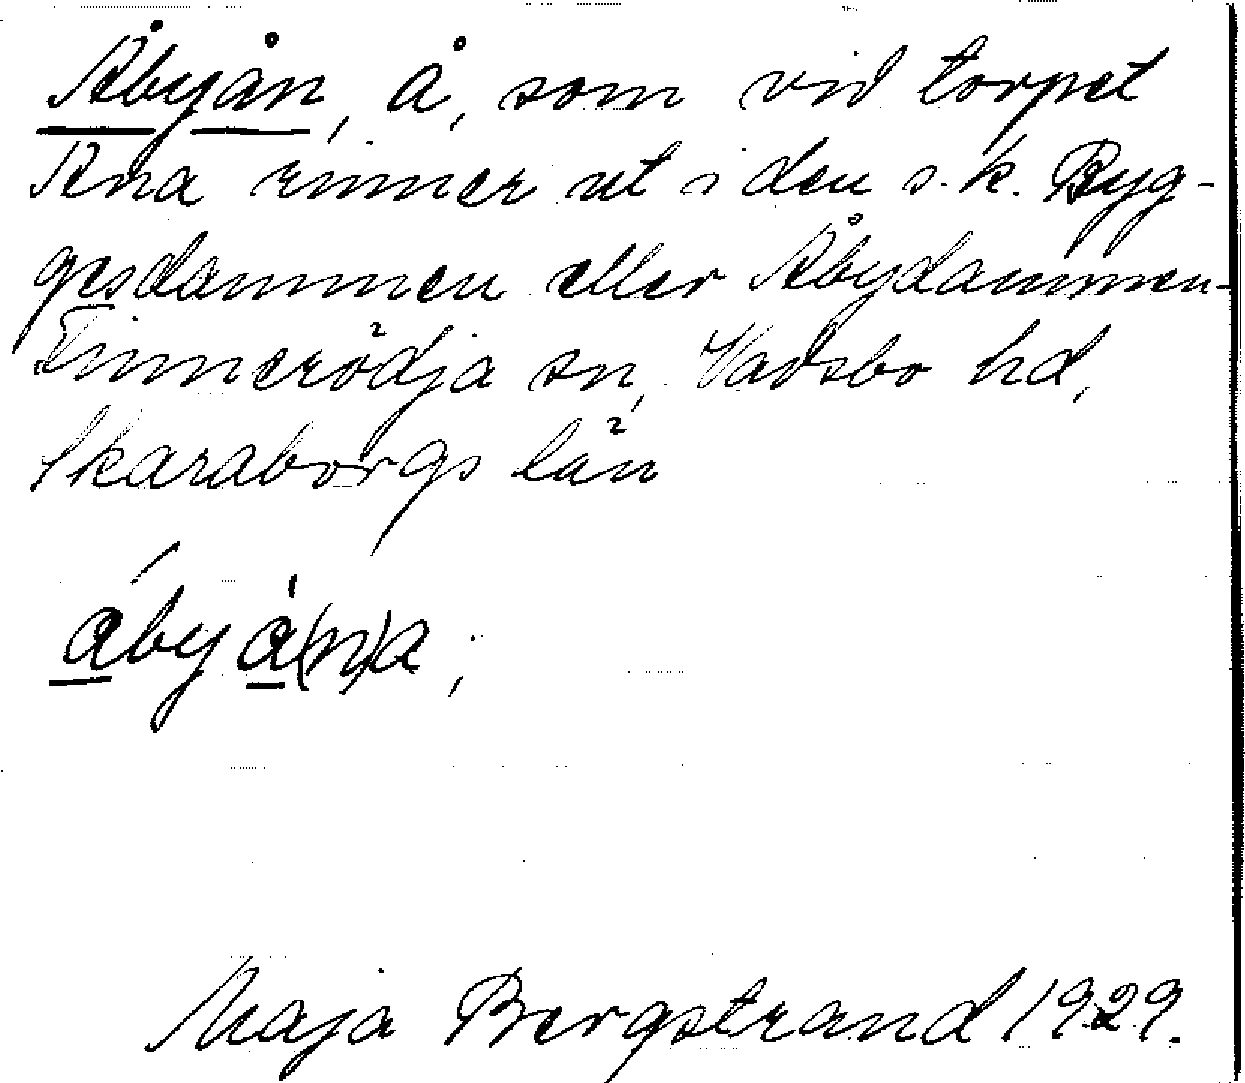 Åbyån, å, som vid torpet
Ana rinner ut i den s.k. Byg-
gesdammen eller Åbydammen-
Finnerödja sn, Vadsbo hd,
Skaraborgs län
åbyå(n)a;
Maja Bergstrand 1929.